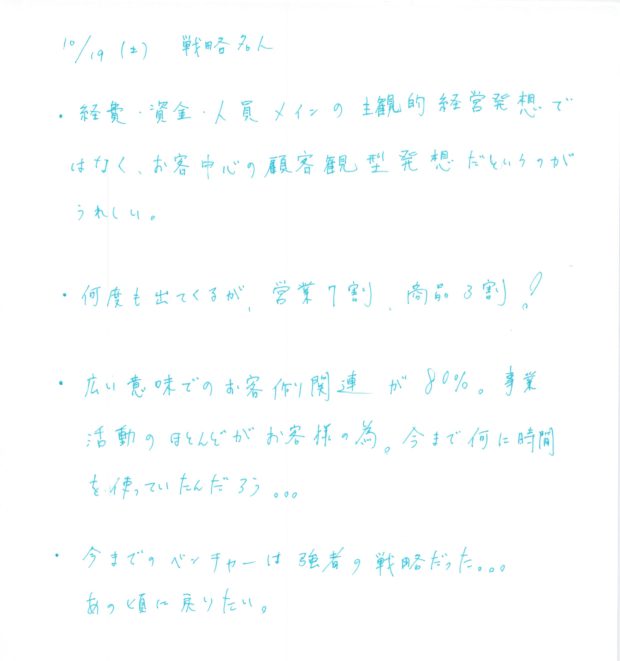 10/19 (土) 戦略名人
・経費・資金・人員メインの主観的経営発想で
はなく、お客中心の顧客観型発想だというのが
うれしい。
・何度も出てくるが、営業7割、商品3割!
・広い意味でのお客作り関連が80%。事業
活動のほとんどがお客様の為。今まで何に時間
を使っていたんだろう...
・今までのベンチャーは強者の戦略だった...
あの頃に戻りたい。